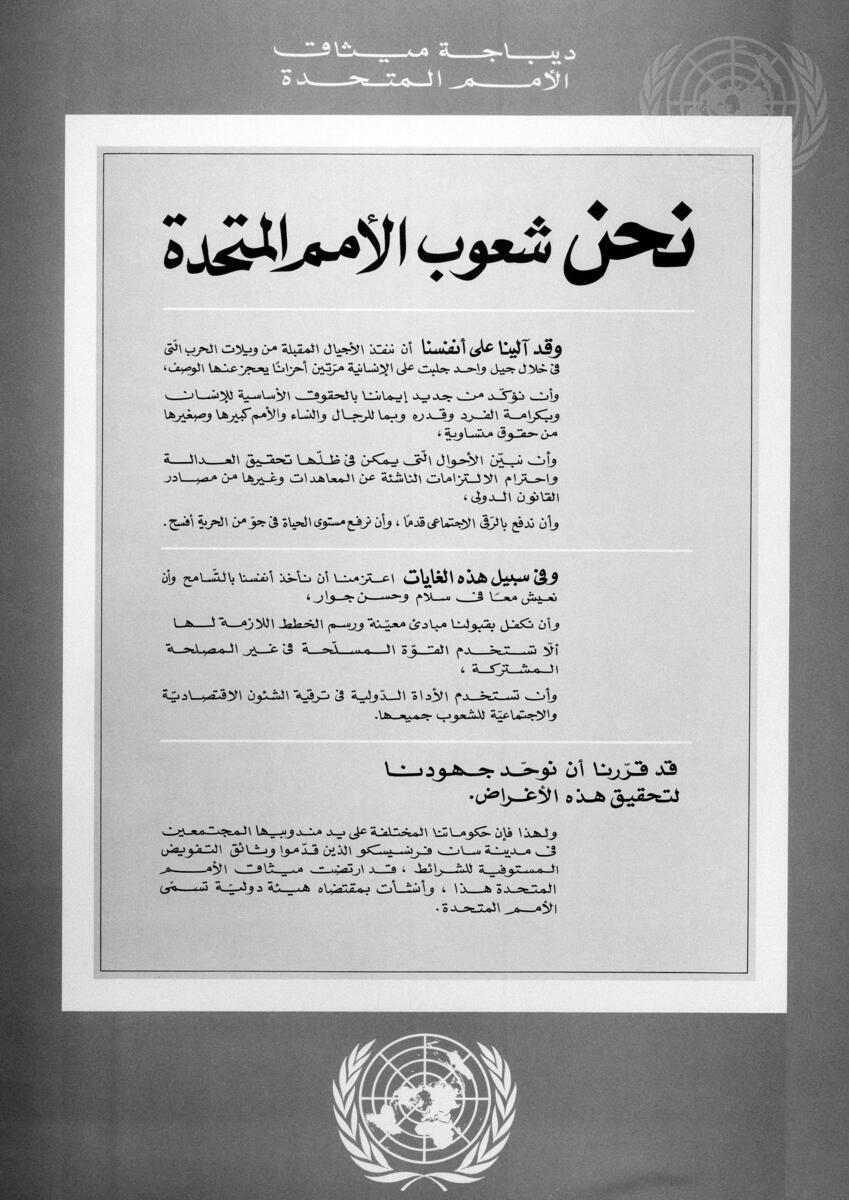 ديباجة ميثاق
الأمم المتحدة
نحن شعوب الأمم المتحدة
وقد آلينا على أنفسنا أن ننقذ الأجيال المقبلة من ويلات الحرب الّتى
فى خلال جيل واحد جلبت على الإنسانية مرّتين أحزانًا يعجز عنها الوصف،
وأن نؤكّد من جديد إيماننا بالحقوق الأساسية للإنسان
وبكرامة الفرد وقدره وبما للرجال والنساء والأمم كبيرها وصغيرها
من حقوق متساوية،
وأن نبيّن الأحوال الّتى يمكن فى ظلّها تحقيق العدالة
واحترام الالتزامات الناشئة عن المعاهدات وغيرها من مصادر
القانون الدولى،
وأن ندفع بالرّقى الاجتماعى قدمًا، وأن نرفع مستوى الحياة فى جوّ من الحرية أفسح.
وفى سبيل هذه الغايات اعتزمنا أن نأخذ أنفسنا بالتّسامح وأن
نعيش معًا فى سلام وحسن جوار،
وأن نكفل بقبولنا مبادئ معيّنة ورسم الخطط اللازمة لها
ألّا تستخدم القوّة المسلّحة فى غير المصلحة
المشتركة،
وأن تستخدم الأداة الدّولية فى ترقية الشئون الاقتصاديّة
والاجتماعيّة للشعوب جميعها.
قد قرّرنا أن نوحّد جهودنا
لتحقيق هذه الأغراض.
ولهذا فإن حكوماتنا المختلفة على يد مندوبيها المجتمعين
فى مدينة سان فرنسيسكو الذين قدّموا وثائق التفويض
المستوفية للشرائط، قد ارتضت ميثاق الأمم
المتحدة هذا، وأنشأت بمقتضاه هيئة دوليّة تسمّى
الأمم المتحدة.